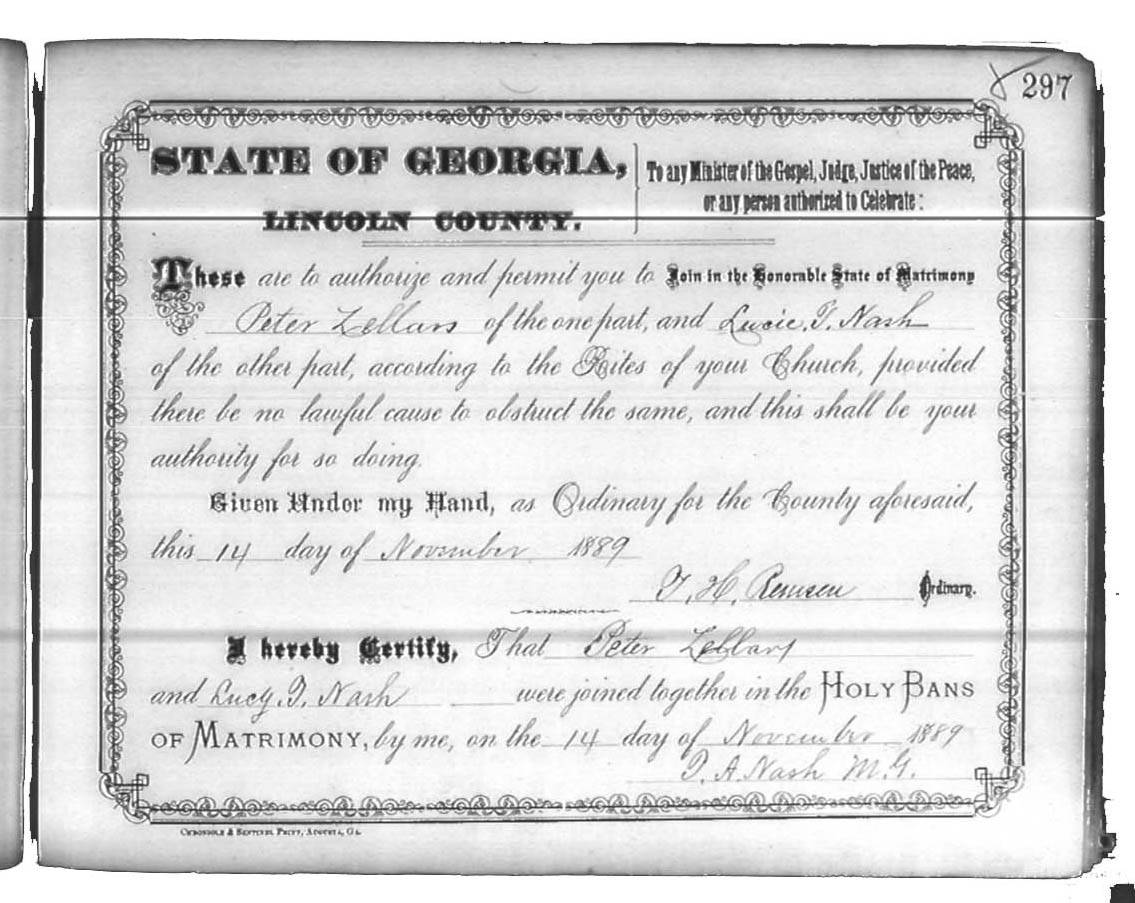 297
STATE OF GEORGIA,
LINCOLN COUNTY.
To any Minister of the Gospel, Judge, Justice of the Peace,
or any person authorized to Celebrate:
These are to authorize and permit you to Join in the Honorable State of Matrimony
Peter Zellars of the one part, and Lucie. T. Nash
of the other part, according to the Rites of your Church, provided
there be no lawful cause to obstruct the same, and this shall be your
authority for so doing.
Given Under my Hand, as Ordinary for the County aforesaid,
this 14 day of November 1889
T. H. Remsen Ordinary.
I hereby Certify, That Peter Zellars
and Lucy. T. Nash were joined together in the HOLY BANS
OF MATRIMONY, by me, on the 14 day of November 1889
T. A. Nash M.G.
CHRONICLE & SENTINEL PRINT, AUGUSTA, GA.